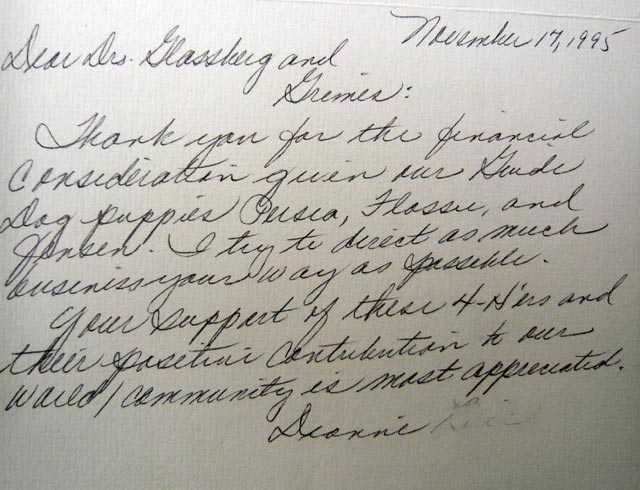 November 17, 1995
Dear Drs. Glassberg and
Grimes:
Thank you for the financial
Consideration given our Guide
Dog puppies Persia, Flossie, and
Jensen. I try to direct as much
business your way as possible.
Your support of these 4-H'ers and
their positive contribution to our
world/community is most appreciated.
Deanne